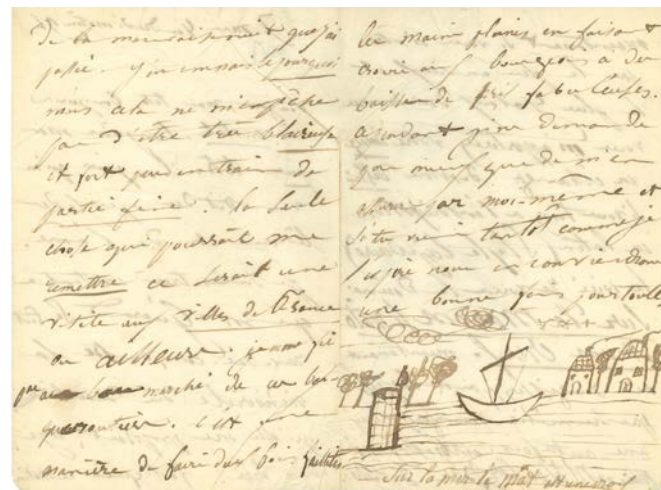 de la mauvaise nuit que j'ai
passé. j'en connais le pourquoi
mais cela ne m'empêche
pas d'être très
et fort peu en train de
partie fine. la seule
chose qui pourrait me
remettre ce serait une
visite aux villes de France
ou ailleurs. je ne me fie
pas au bon marché de ces
c'est une
manière de faire des fois faillites
les mains pleines en faisant
croire aux bourgeois a des
baisses de prix fabuleuses.
cependant je ne demande
pas mieux que de m'en
assurer par moi-même et
si tu viens tantot comme je
l'espère nous en conviendrons
une bonne fois pour toute
Sur la mer le mât